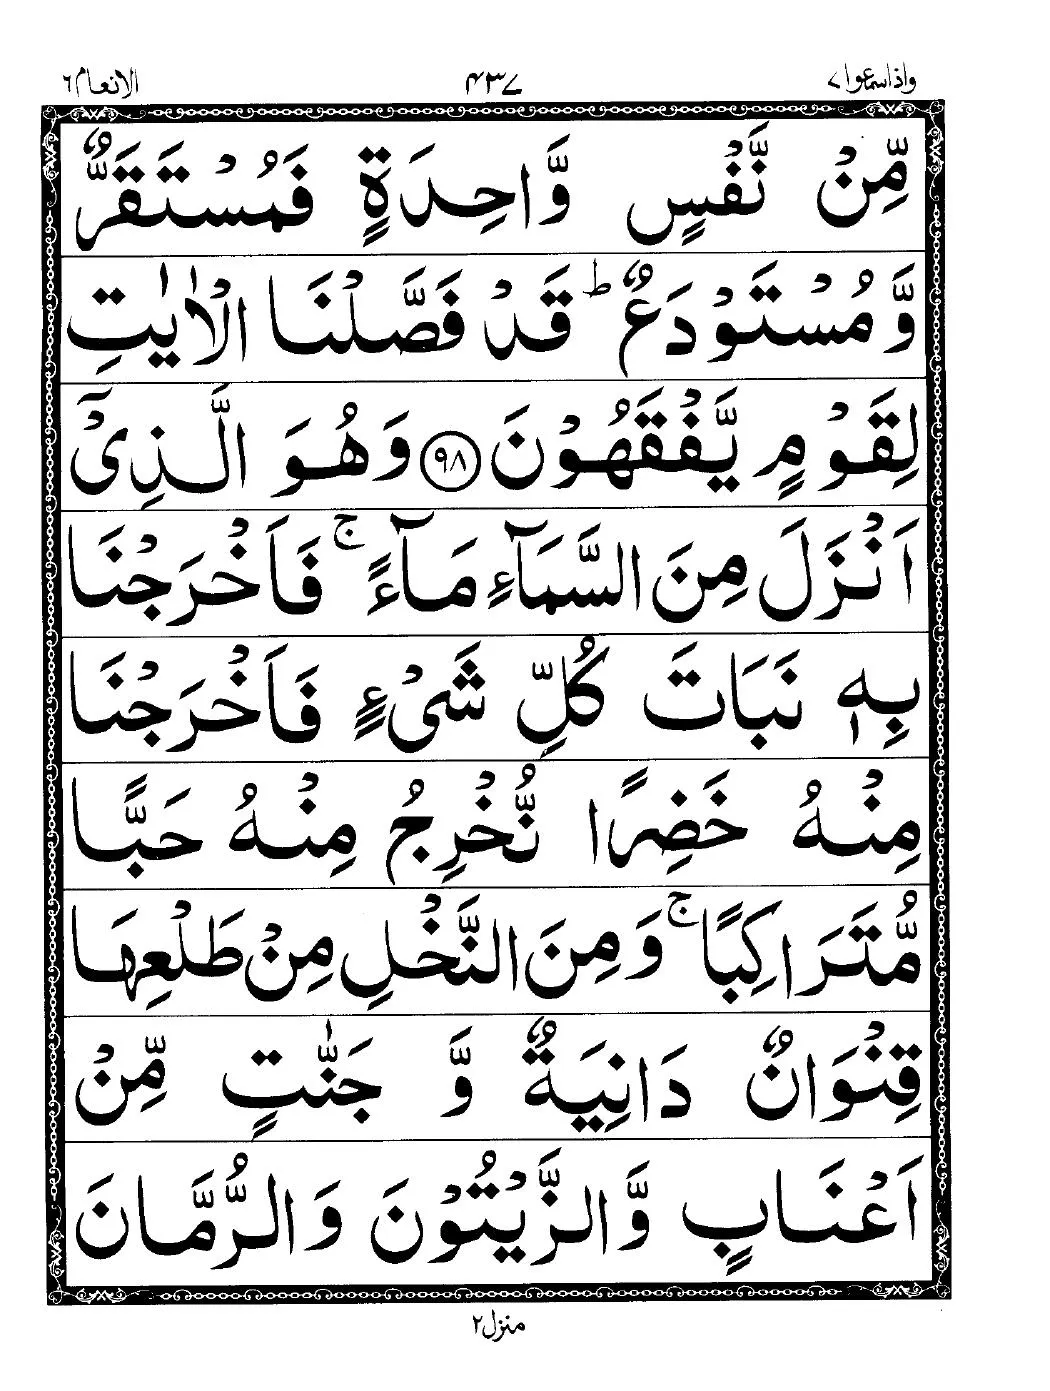 واذاسمعوا ٧ ۴۳۷ الانعام ٦
مِّنْ نَّفْسٍ وَّاحِدَةٍ فَمُسْتَقَرٌّ
وَّمُسْتَوْدَعٌ ؕ قَدْ فَصَّلْنَا الْاٰيٰتِ
لِقَوْمٍ يَّفْقَهُوْنَ ﴿۹۸﴾ وَهُوَ الَّذِىْۤ
اَنْزَلَ مِنَ السَّمَآءِ مَآءً ۚ فَاَخْرَجْنَا
بِهٖ نَبَاتَ كُلِّ شَىْءٍ فَاَخْرَجْنَا
مِنْهُ خَضِرًا نُّخْرِجُ مِنْهُ حَبًّا
مُّتَرَاكِبًا ۚ وَمِنَ النَّخْلِ مِنْ طَلْعِهَا
قِنْوَانٌ دَانِيَةٌ وَّ جَنّٰتٍ مِّنْ
اَعْنَابٍ وَّالزَّيْتُوْنَ وَالرُّمَّانَ
منزل ٢